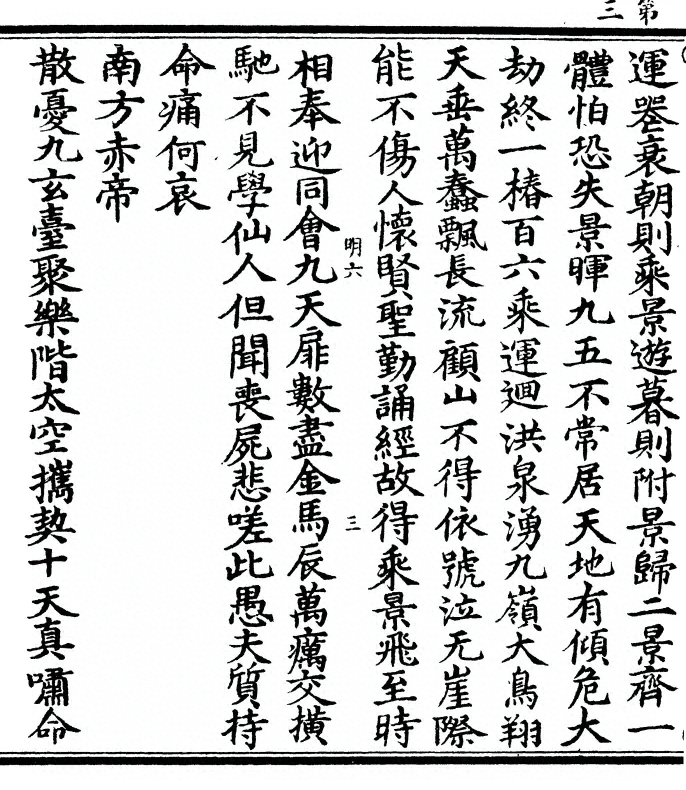 第三
運啚衰朝則乘景遊暮則附景歸二景齊一
體怕恐失景暉九五不常居天地有傾危大
劫終一椿百六乘運迴洪泉湧九嶺大鳥翔
天垂萬蠢飄長流顧山不得依號泣无崖際
能不傷人懷賢聖勤誦經故得乘景飛至時
明六
三
相奉迎同會九天扉數盡金馬辰萬癘交橫
馳不見學仙人但聞喪屍悲嗟此愚夫質持
命痛何哀
南方赤帝
散憂九玄臺聚樂階太空攜契十天真嘯命